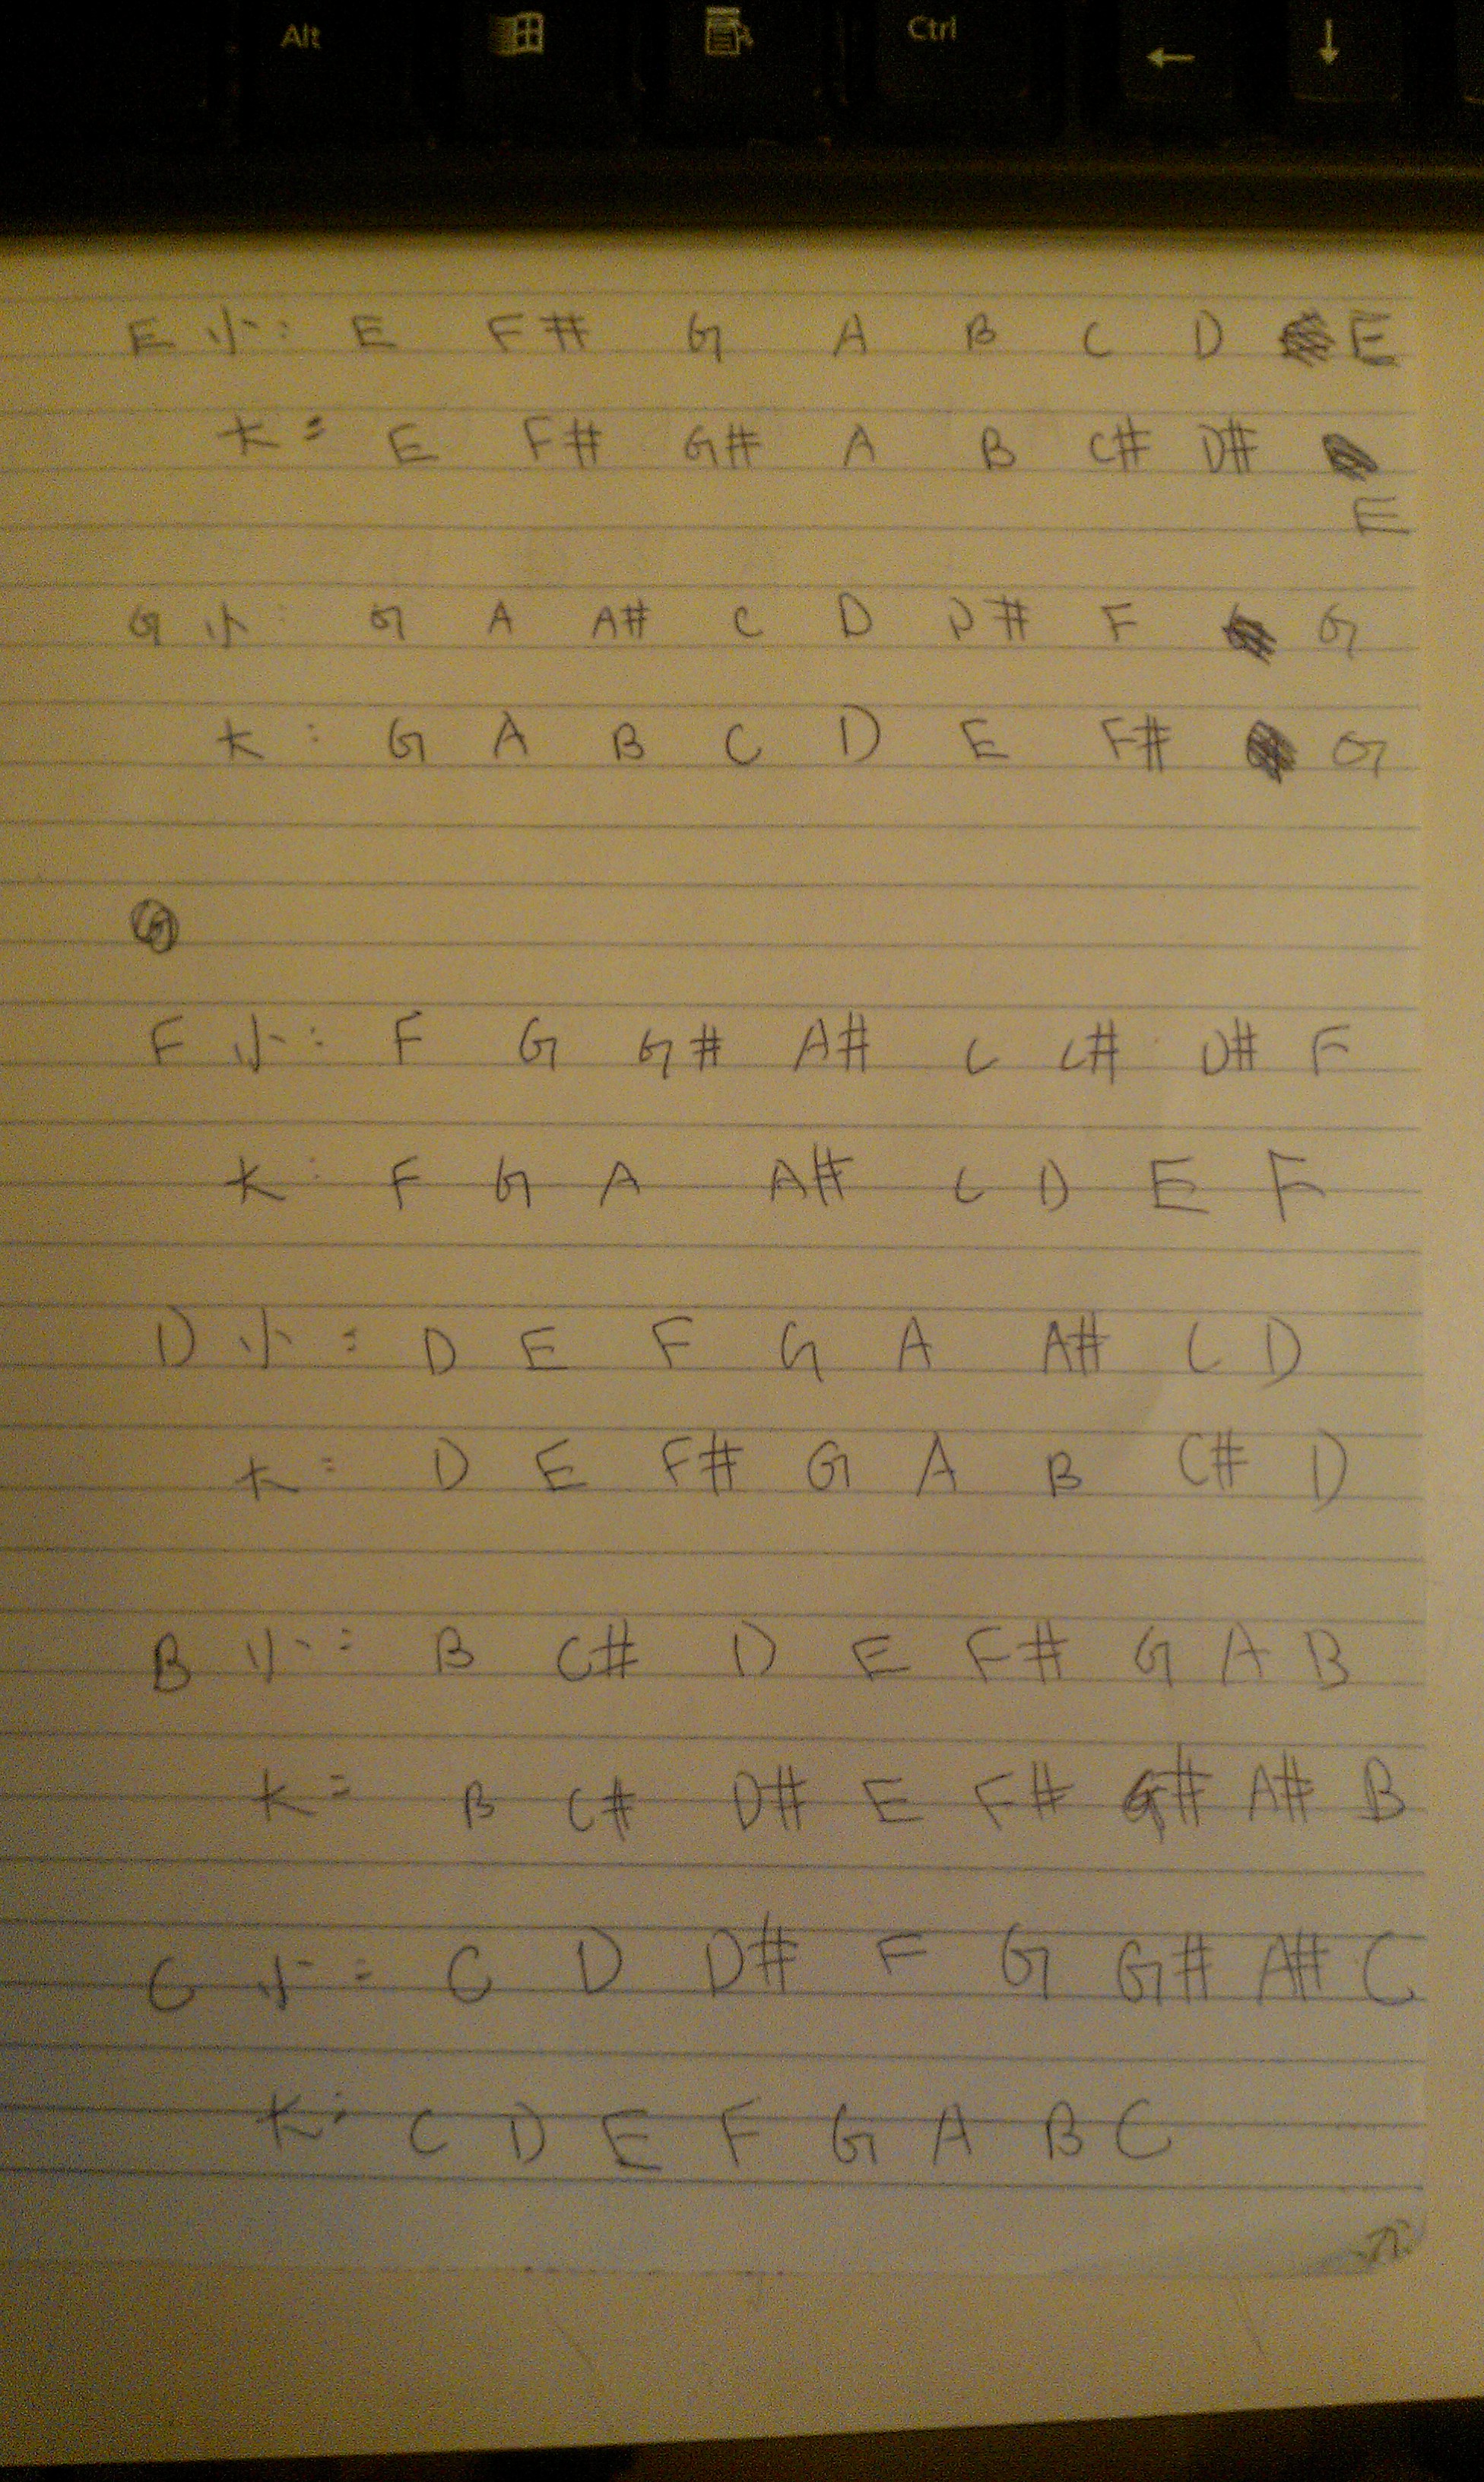 Alt Ctrl ← ↓
E 小: E F# G A B C D E
大: E F# G# A B C# D#
E
G 小: G A A# C D D# F G
大: G A B C D E F# G
F 小: F G G# A# C C# D# F
大: F G A A# C D E F
D 小: D E F G A A# C D
大: D E F# G A B C# D
B 小: B C# D E F# G A B
大: B C# D# E F# G# A# B
C 小: C D D# F G G# A# C
大: C D E F G A B C